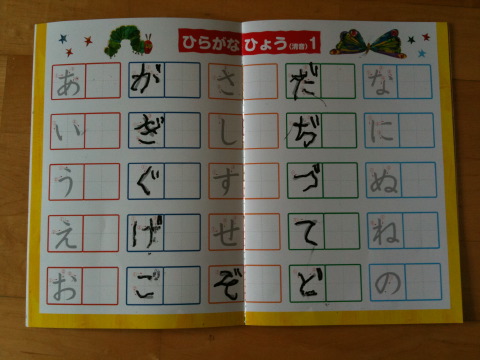 ひらがな ひょう(清音)1
あ が さ だ な
い ぎ し ぢ に
う ぐ す づ ぬ
え げ せ て ね
お ご ぞ ど の